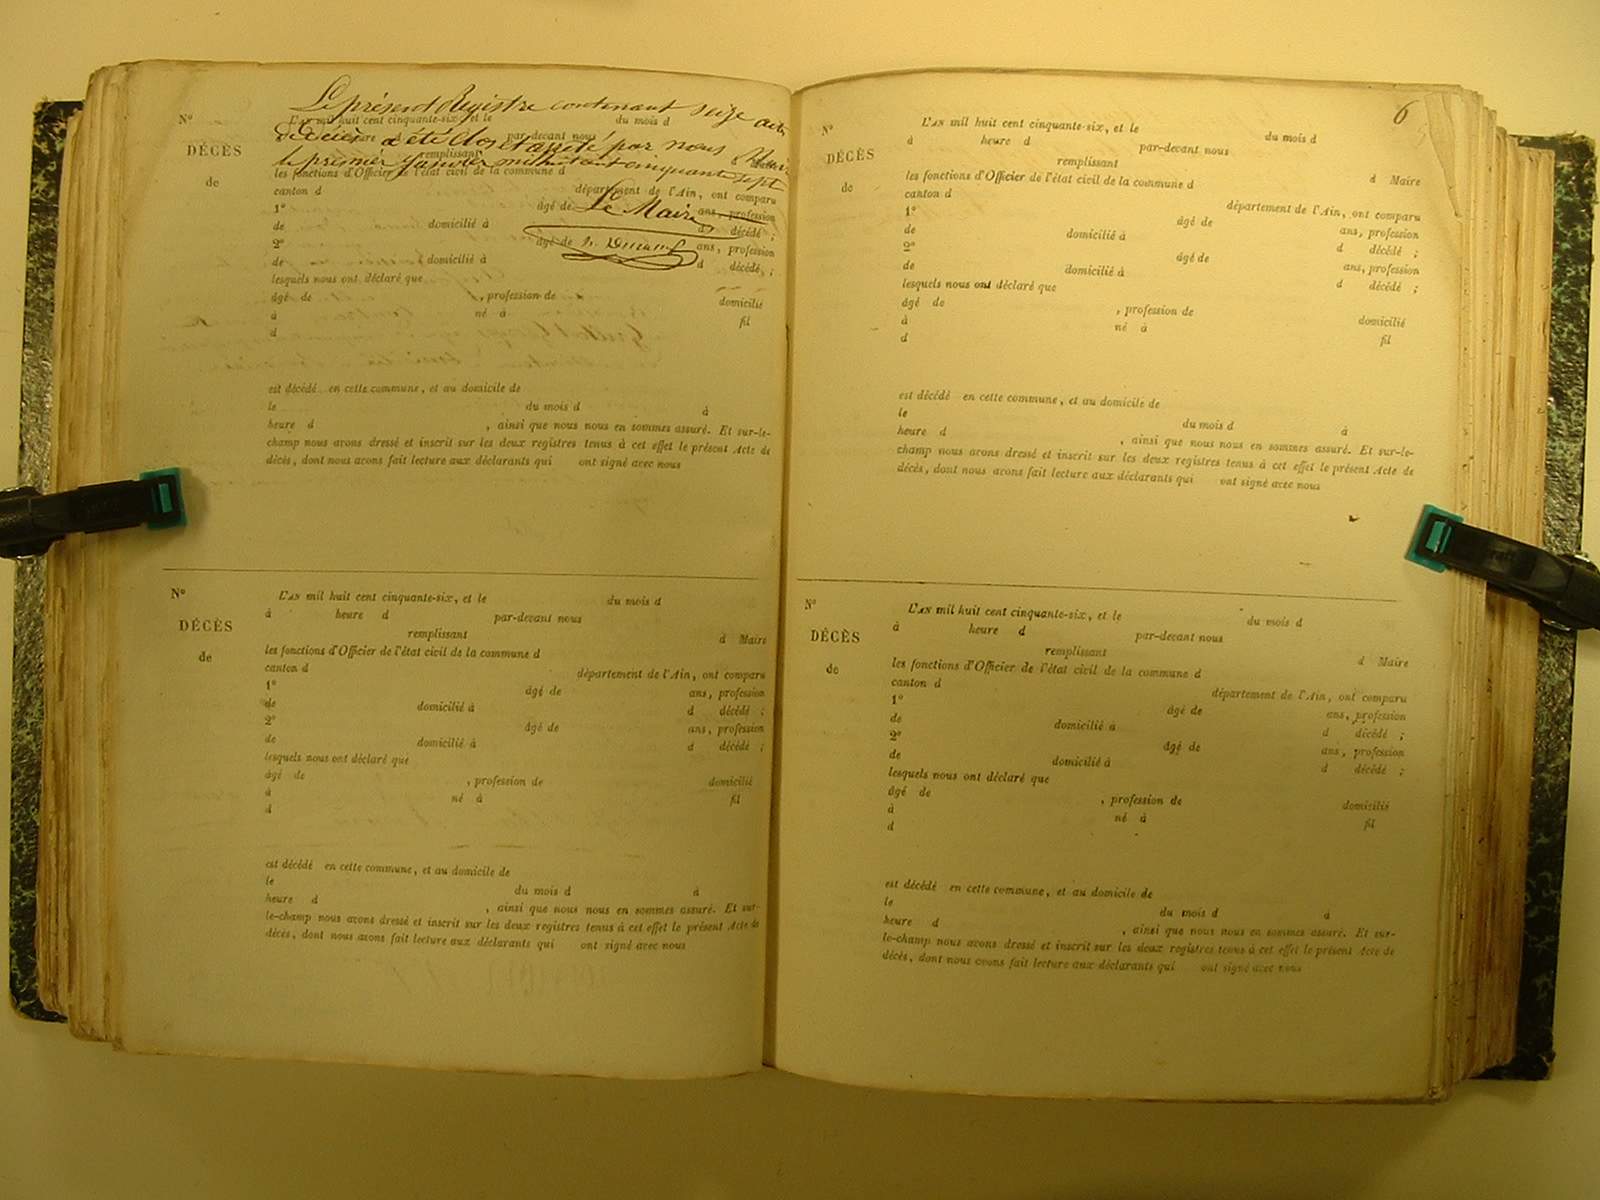 Le présent Registre contenant seize actes
de Décès a été clos et arrêté par nous Maire
le premier Janvier mil huit cent cinquante sept
Le Maire
N°
DÉCÈS
de
L'AN mil huit cent cinquante-six, et le du mois d
à heure d par-devant nous
remplissant d Maire
les fonctions d'Officier de l'état civil de la commune d
canton d département de l'Ain, ont comparu
1° âgé de ans, profession
de domicilié à d décédé ;
2° âgé de ans, profession
de domicilié à d décédé, ;
lesquels nous ont déclaré que
âgé de , profession de domicilié
à né à fil
d
est décédé en cette commune, et au domicile de
le du mois d à
heure d , ainsi que nous nous en sommes assuré. Et sur-le-
champ nous avons dressé et inscrit sur les deux registres tenus à cet effet le présent Acte de
décès, dont nous avons fait lecture aux déclarants qui ont signé avec nous
N°
DÉCÈS
de
L'AN mil huit cent cinquante-six, et le du mois d
à heure d par-devant nous
remplissant d Maire
les fonctions d'Officier de l'état civil de la commune d
canton d département de l'Ain, ont comparu
1° âgé de ans, profession
de domicilié à d décédé ;
2° âgé de ans, profession
de domicilié à d décédé ;
lesquels nous ont déclaré que
âgé de , profession de domicilié
à né à fil
d
est décédé en cette commune, et au domicile de
le du mois d à
heure d , ainsi que nous nous en sommes assuré. Et sur-
le-champ nous avons dressé et inscrit sur les deux registres tenus à cet effet le présent Acte de
décès, dont nous avons fait lecture aux déclarants qui ont signé avec nous
6
N°
DÉCÈS
de
L'AN mil huit cent cinquante-six, et le du mois d
à heure d par-devant nous
remplissant d Maire
les fonctions d'Officier de l'état civil de la commune d
canton d département de l'Ain, ont comparu
1° âgé de ans, profession
de domicilié à d décédé ;
2° âgé de ans, profession
de domicilié à d décédé ;
lesquels nous ont déclaré que
âgé de , profession de domicilié
à né à fil
d
est décédé en cette commune, et au domicile de
le du mois d à
heure d , ainsi que nous nous en sommes assuré. Et sur-le-
champ nous avons dressé et inscrit sur les deux registres tenus à cet effet le présent Acte de
décès, dont nous avons fait lecture aux déclarants qui ont signé avec nous
N°
DÉCÈS
de
L'AN mil huit cent cinquante-six, et le du mois d
à heure d par-devant nous
remplissant d Maire
les fonctions d'Officier de l'état civil de la commune d
canton d département de l'Ain, ont comparu
1° âgé de ans, profession
de domicilié à d décédé ;
2° âgé de ans, profession
de domicilié à d décédé ;
lesquels nous ont déclaré que
âgé de , profession de domicilié
à né à fil
d
est décédé en cette commune, et au domicile de
le du mois d à
heure d , ainsi que nous nous en sommes assuré. Et sur-
le-champ nous avons dressé et inscrit sur les deux registres tenus à cet effet le présent Acte de
décès, dont nous avons fait lecture aux déclarants qui ont signé avec nous